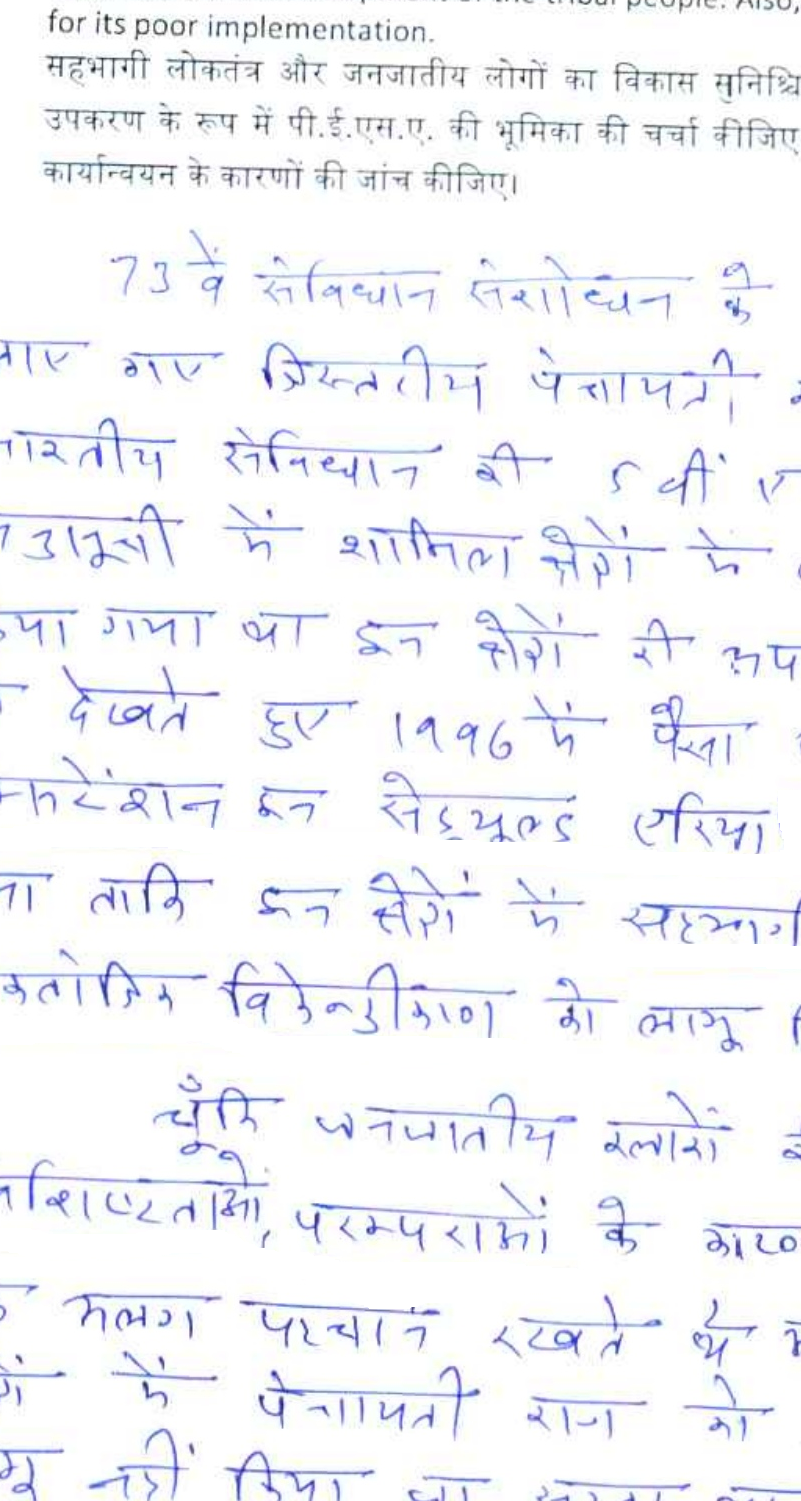 for its poor implementation.
सहभागी लोकतंत्र और जनजातीय लोगों का विकास सुनिश्चि
उपकरण के रूप में पी.ई.एस.ए. की भूमिका की चर्चा कीजिए
कार्यान्वयन के कारणों की जांच कीजिए।
73 वें संविधान संशोधन के
गए त्रिस्तरीय पंचायती
संविधान की 5 वीं
में शामिल क्षेत्रों में
गया था इन क्षेत्रों की
देखते हुए 1996 में पैसा
इन सेड्यूल्ड एरिया
ताकि इन क्षेत्रों में सहभाग
विकेन्द्रीकरण को लागू
चूँकि जनजातीय इलाकों
परम्पराओं के
अलग पहचान रखते थे
में पंचायती राज को
नहीं किया जा